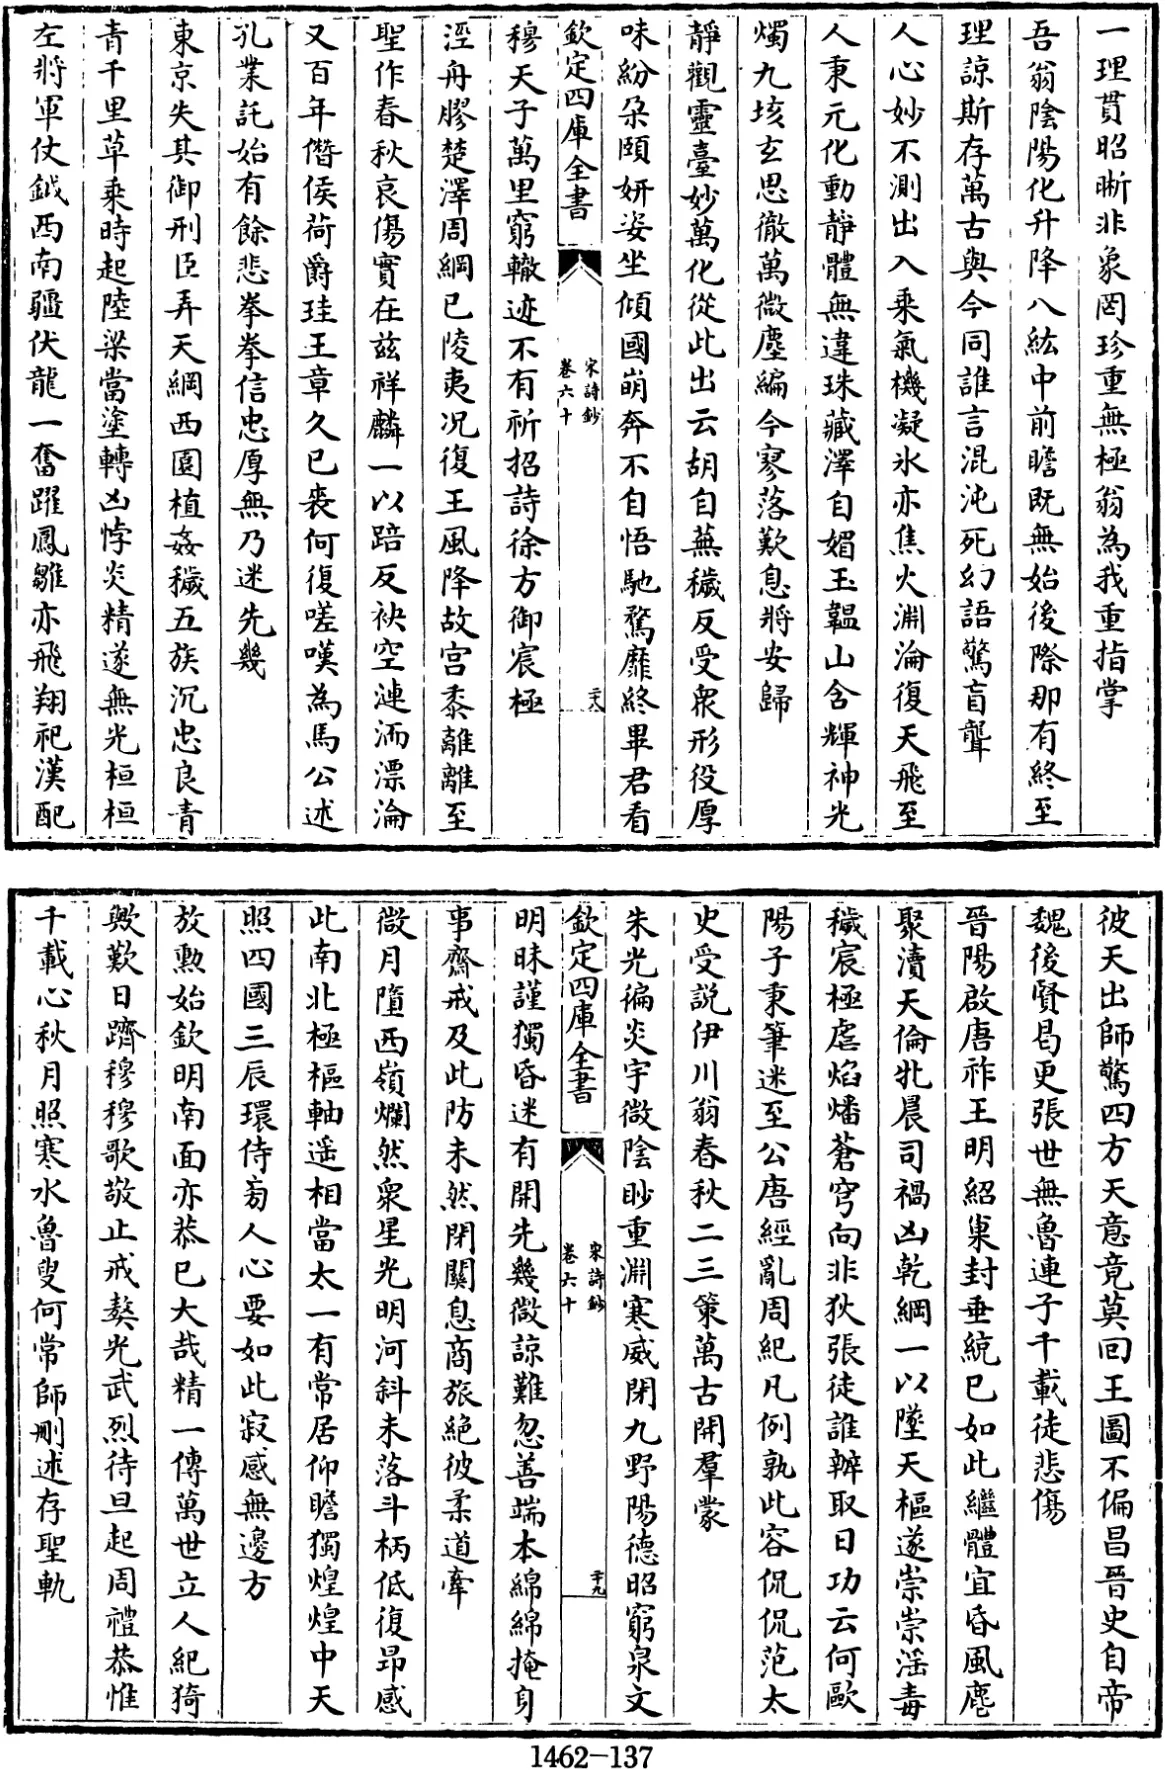 一理貫昭晰非象罔珍重無極翁為我重指掌
吾翁陰陽化升降八紘中前瞻既無始後際那有終至
理諒斯存萬古與今同誰言混沌死幻語驚盲聾
人心妙不測出入乘氣機凝氷亦焦火淵淪復天飛至
人秉元化動靜體無違珠藏澤自媚玉韞山含輝神光
燭九垓玄思徹萬微塵編今寥落歎息將安歸
靜觀靈臺妙萬化從此出云胡自蕪穢反受衆形役厚
味紛朶頤妍姿坐傾國崩奔不自悟馳騖靡終畢君看
欽定四庫全書
宋詩鈔
卷六十
二十八
穆天子萬里窮轍迹不有祈招詩徐方御宸極
涇舟膠楚澤周綱已陵夷况復王風降故宫黍離離至
聖作春秋哀傷實在兹祥麟一以踣反袂空漣洏漂淪
又百年僭侯荷爵珪王章久已喪何復嗟嘆為馬公述
孔業託始有餘悲拳拳信忠厚無乃迷先幾
東京失其御刑臣弄天綱西園植姦穢五族沉忠良青
青千里草乘時起陸梁當塗轉凶悖炎精遂無光桓桓
左將軍仗鉞西南疆伏龍一奮躍鳳雛亦飛翔祀漢配
彼天出師驚四方天意竟莫回王圖不偏昌晉史自帝
魏後賢曷更張世無魯連子千載徒悲傷
晉陽啟唐祚王明紹巢封垂統已如此繼體宜昏風麀
聚瀆天倫牝晨司禍凶乾綱一以墜天樞遂崇崇淫毒
穢宸極虐焰燔蒼穹向非狄張徒誰辦取日功云何歐
陽子秉筆迷至公唐經亂周紀凡例孰此容侃侃范太
史受説伊川翁春秋二三策萬古開羣蒙
朱光徧炎宇微陰眇重淵寒威閉九野陽德昭窮泉文
欽定四庫全書
宋詩鈔
卷六十
二十九
明昧謹獨昏迷有開先幾微諒難忽善端本綿綿掩身
事齋戒及此防未然閉關息商旅絶彼柔道牽
微月墮西嶺爛然衆星光明河斜未落斗柄低復昻感
此南北極樞軸遥相當太一有常居仰瞻獨煌煌中天
照四國三辰環侍㫄人心要如此寂感無邊方
放勲始欽明南面亦恭已大哉精一傳萬世立人紀猗
歟歎日躋穆穆歌敬止戒獒光武烈待旦起周禮恭惟
千載心秋月照寒水魯叟何常師刪述存聖軌
1462-137